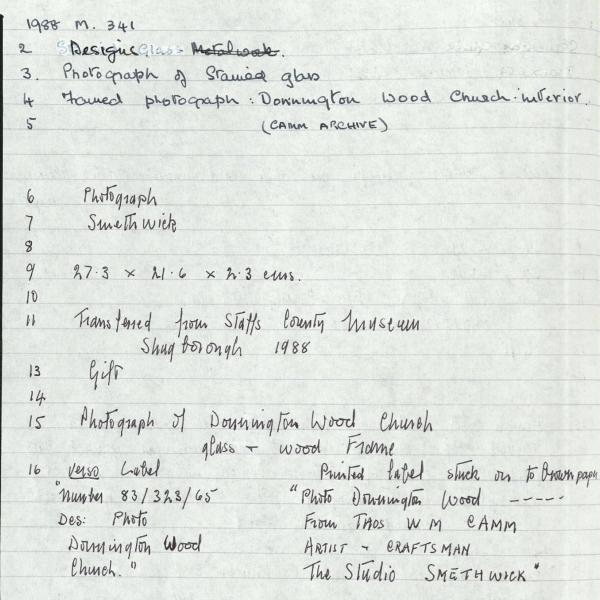 1988 M. 341
2 Designs Glass Metalwork.
3. Photograph of Stained glass
4 Framed photograph: Donnington Wood Church-interior.
5 (CAMM ARCHIVE)
6 Photograph
7 Smethwick
8
9 27.3 × 21.6 × 2.3 cms.
10
11 Transferred from Staffs County Museum
Shugborough 1988
13 Gift
14
15 Photograph of Donnington Wood Church
glass + wood Frame
16 verso Label
"number 83/323/65
Des: Photo
Donnington Wood
Church."
Printed label stuck on to brown paper
"Photo Donnington Wood -----
From Thos WM CAMM
ARTIST - CRAFTSMAN
The Studio SMETHWICK"